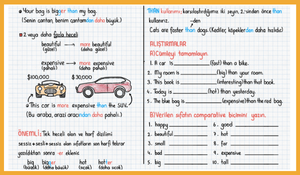 • Your bag is bigger than my bag.
(Senin çantan, benim çantamdan daha büyük.)
• 2 veya daha fazla heceli
beautiful → more beautiful
(güzel) (daha güzel)
expensive → more expensive
(pahalı) (daha pahalı)
$100,000
$30,000
• This car is more expensive than the SUV.
(Bu araba, arazi aracından daha pahalı.)
ÖNEMLİ: Tek heceli
sessiz + sesli + sessiz olan sıfatların son harfi tekrar
yazıldıktan sonra er eklenir.
big bigger hot hotter
(büyük) (daha büyük) (sıcak) (daha sıcak)
THAN kullanımı: karşılaştırdığımız iki şeyin, 2.'sinden önce than
kullanırız. -den
Cats are faster than dogs. (Kediler, köpeklerden daha hızlıdır.)
ALIŞTIRMALAR
A) Cümleyi tamamlayın
1. A car is (fast) than a bike.
2. My room is (big) than your room.
3. This book is (interesting) than that book.
4. Today is (hot) than yesterday.
5. The blue bag is (expensive) than the red bag.
B) Verilen sıfatın comparative biçimini yazın.
1. happy
2. beautiful
3. small
4. bad
5. big
6. good
7. hot
8. far
9. expensive
10. tall